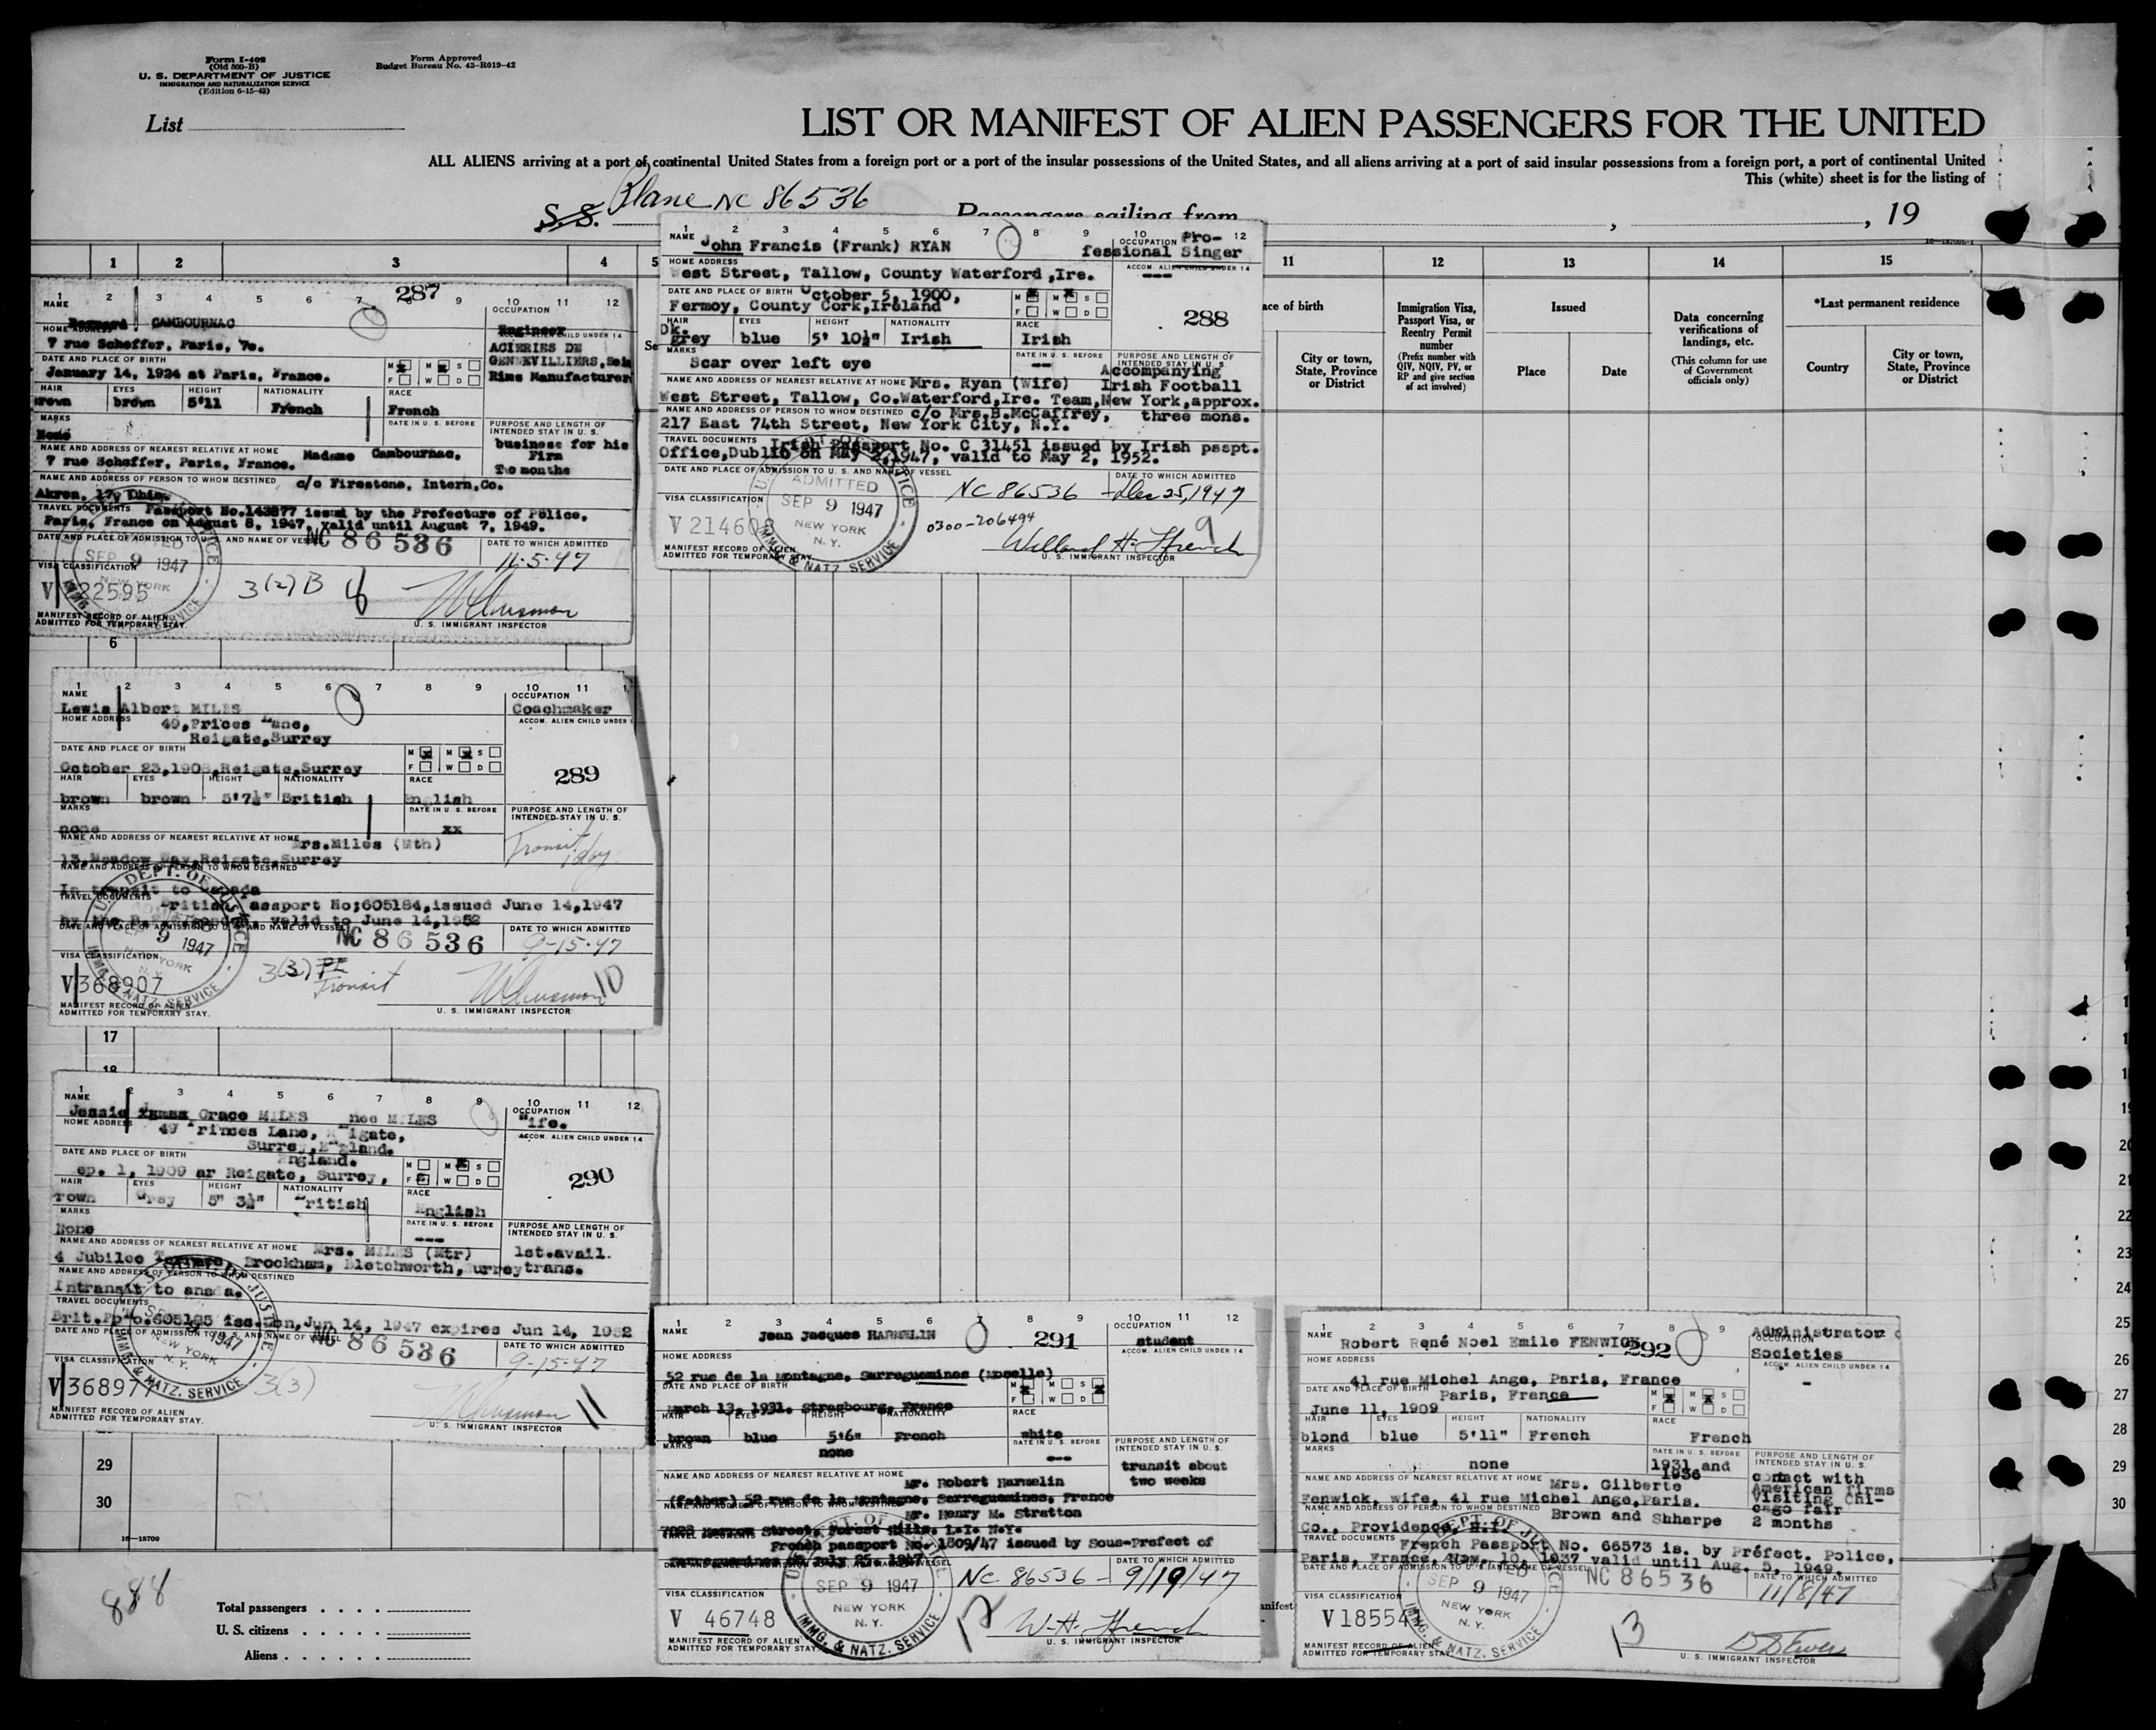 Form I-408
(Old 500-B)
U. S. DEPARTMENT OF JUSTICE
IMMIGRATION AND NATURALIZATION SERVICE
(Edition 6-15-43)
Form Approved
Budget Bureau No. 43-R019-42
List
LIST OR MANIFEST OF ALIEN PASSENGERS FOR THE UNITED
ALL ALIENS arriving at a port of continental United States from a foreign port or a port of the insular possessions of the United States, and all aliens arriving at a port of said insular possessions from a foreign port, a port of continental United
This (white) sheet is for the listing of
S. S. Plane NC 86536 Passengers sailing from , , 19
1 2 3 4 5 11 12 13 14 15
ace of birth
City or town, State, Province or District
Immigration Visa, Passport Visa, or Reentry Permit number
(Prefix number with QIV, NQIV, PV, or RP and give section of act involved)
Issued
Place
Date
Data concerning verifications of landings, etc.
(This column for use of Government officials only)
*Last permanent residence
Country
City or town, State, Province or District
1 2 3 4 5 6 7 9 10 11 12
287
NAME
CAMBOURNAC
OCCUPATION
Engineer
HOME ADDRESS
7 rue Scheffer, Paris, 7e.
CHILD UNDER 14
ACIERIES DE
GENNEVILLIERS, Seine
Rims Manufacturer
DATE AND PLACE OF BIRTH
January 14, 1924 at Paris, France.
M M S
F W D
HAIR EYES HEIGHT NATIONALITY RACE
brown 5'11 French French
MARKS
None
DATE IN U. S. BEFORE
PURPOSE AND LENGTH OF INTENDED STAY IN U. S.
business for his
Firm
Two months
NAME AND ADDRESS OF NEAREST RELATIVE AT HOME Madame Cambournac,
7 rue Scheffer, Paris, France.
NAME AND ADDRESS OF PERSON TO WHOM DESTINED c/o Firestone, Intern,Co.
Akron, 17, Ohio.
TRAVEL DOCUMENTS Passport No.143877 issued by the Prefecture of Police,
Paris, France on August 8, 1947, valid until August 7, 1949.
DATE AND PLACE OF ADMISSION TO U. S. AND NAME OF VESSEL NC 86536
DATE TO WHICH ADMITTED
11-5-47
SEP 9 1947
NEW YORK
VISA CLASSIFICATION
3(2) B
MANIFEST RECORD OF ALIEN
ADMITTED FOR TEMPORARY STAY.
U. S. IMMIGRANT INSPECTOR
1 2 3 4 5 6 7 8 9 10 12
NAME John Francis (Frank) RYAN
OCCUPATION Pro-
fessional Singer
HOME ADDRESS
West Street, Tallow, County Waterford ,Ire.
ACCOM. ALIEN CHILD UNDER 14
---
DATE AND PLACE OF BIRTH October 5, 1900,
Fermoy, County Cork,Ireland
M M S
F W D
288
HAIR EYES HEIGHT NATIONALITY RACE
Dk.
grey blue 5' 10½" Irish Irish
MARKS
Scar over left eye
DATE IN U. S. BEFORE
--
PURPOSE AND LENGTH OF INTENDED STAY IN U. S.
Accompanying
NAME AND ADDRESS OF NEAREST RELATIVE AT HOME Mrs. Ryan (Wife) Irish Football
West Street, Tallow, Co.Waterford,Ire. Team,New York,approx.
NAME AND ADDRESS OF PERSON TO WHOM DESTINED c/o Mrs.B.McCaffrey, three mons.
217 East 74th Street, New York City, N.Y.
TRAVEL DOCUMENTS Irish Passport No. C 31451 issued by Irish psspt.
Office,Dublin on May 2,1947, valid to May 2, 1952.
DATE AND PLACE OF ADMISSION TO U. S. AND NAME OF VESSEL
DATE TO WHICH ADMITTED
NC 86536 - Dec 25, 1947
ADMITTED
SEP 9 1947
NEW YORK
N. Y.
IMMG. & NATZ. SERVICE
VISA CLASSIFICATION
0300-206494
9
MANIFEST RECORD OF ALIEN
ADMITTED FOR TEMPORARY STAY.
U. S. IMMIGRANT INSPECTOR
6
1 2 3 4 5 6 7 8 9 10 11
NAME
Lewis Albert MILES
OCCUPATION
Coachmaker
HOME ADDRESS
49,Prices Lane,
Reigate,Surrey
ACCOM. ALIEN CHILD UNDER
DATE AND PLACE OF BIRTH
October 23,1908,Reigate,Surrey
M M S
F W D
289
HAIR EYES HEIGHT NATIONALITY RACE
brown brown 5'7½" British English
MARKS
none
DATE IN U. S. BEFORE
xx
PURPOSE AND LENGTH OF INTENDED STAY IN U. S.
Transit
1 day
NAME AND ADDRESS OF NEAREST RELATIVE AT HOME Mrs.Miles (Mth)
13,Meadow Way,Reigate,Surrey
NAME AND ADDRESS OF PERSON TO WHOM DESTINED
In transit to Canada
TRAVEL DOCUMENTS British Passport No;605184,issued June 14,1947
valid to June 14,1952
DATE AND PLACE OF ADMISSION TO U. S. AND NAME OF VESSEL NC 86536
DATE TO WHICH ADMITTED
9-15-47
9 1947
VISA CLASSIFICATION
V 368907
3(3) Transit
10
MANIFEST RECORD OF ALIEN
ADMITTED FOR TEMPORARY STAY.
U. S. IMMIGRANT INSPECTOR
17
18
1 2 3 4 5 6 7 8 9 10 11 12
NAME
Jessie Grace MILES nee MILES
OCCUPATION
Wife.
HOME ADDRESS
49 Princes Lane, Reigate,
Surrey,England.
ACCOM. ALIEN CHILD UNDER 14
DATE AND PLACE OF BIRTH England.
ep. 1, 1909 ar Reigate, Surrey,
M M S
F W D
290
HAIR EYES HEIGHT NATIONALITY RACE
rown Gray 5" 3½" British English
MARKS
None
DATE IN U. S. BEFORE
---
PURPOSE AND LENGTH OF INTENDED STAY IN U. S.
NAME AND ADDRESS OF NEAREST RELATIVE AT HOME Mrs. MILES (Mtr) 1st.avail.
4 Jubilee Terrace, Brockham, Bletchworth, urrey trans.
NAME AND ADDRESS OF PERSON TO WHOM DESTINED
Intransit to anada.
TRAVEL DOCUMENTS
Brit.Pp 605185 iss on,Jun 14, 1947 expires Jun 14, 1952
DATE AND PLACE OF ADMISSION TO U. S. AND NAME OF VESSEL NC 86536
DATE TO WHICH ADMITTED
9-15-47
VISA CLASSIFICATION
3(3)
11
MANIFEST RECORD OF ALIEN
ADMITTED FOR TEMPORARY STAY.
U. S. IMMIGRANT INSPECTOR
29
30
16-18709
888
Total passengers . . . .
U. S. citizens . . . . .
Aliens . . . . . .
1 2 3 4 5 6 7 8 9 10 11 12
NAME Jean Jacques HARMELIN
291
OCCUPATION
student
HOME ADDRESS
52 rue de la Montagne, Sarreguemines (Moselle)
ACCOM. ALIEN CHILD UNDER 14
DATE AND PLACE OF BIRTH
March 13, 1931. Strasbourg, France
M M S
F W D
HAIR EYES HEIGHT NATIONALITY RACE
brown blue 5'6" French white
MARKS none
DATE IN U. S. BEFORE
---
PURPOSE AND LENGTH OF INTENDED STAY IN U. S.
transit about
two weeks
NAME AND ADDRESS OF NEAREST RELATIVE AT HOME Mr. Robert Harmelin
(father) 52 rue de la Montagne, Sarreguemines, France
NAME AND ADDRESS OF PERSON TO WHOM DESTINED
Mr. Henry M. Stratton
Street, Forest Hills, L.I. N.Y.
TRAVEL DOCUMENTS
French passport No. 1809/47 issued by Sous-Prefect of
Sarreguemines July 25, 1947
NC 86536 -
DATE TO WHICH ADMITTED
9/19/47
SEP 9 1947
NEW YORK
N. Y.
IMMG. & NATZ. SERVICE
VISA CLASSIFICATION
V 46748
12
MANIFEST RECORD OF ALIEN
ADMITTED FOR TEMPORARY STAY.
U. S. IMMIGRANT INSPECTOR
1 2 3 4 5 6 7 8 9
NAME Robert René Noel Emile FENWICK
292
Administrator
OCCUPATION
Societies
HOME ADDRESS
41 rue Michel Ange, Paris, France
ACCOM. ALIEN CHILD UNDER 14
-
DATE AND PLACE OF BIRTH Paris, France
June 11, 1909
M M S
F W D
HAIR EYES HEIGHT NATIONALITY RACE
blond blue 5'11" French French
MARKS
none
DATE IN U. S. BEFORE
1931 and
1936
PURPOSE AND LENGTH OF INTENDED STAY IN U. S.
contact with
American firms
Visiting Chi-
cago fair
2 months
NAME AND ADDRESS OF NEAREST RELATIVE AT HOME Mrs. Gilberte
Fenwick, wife, 41 rue Michel Ange,Paris.
NAME AND ADDRESS OF PERSON TO WHOM DESTINED Brown and Shharpe
Co., Providence, R.I.
TRAVEL DOCUMENTS French Passport No. 66573 is. by Préfect. Police,
Paris, France, Nov. 10, 1937 valid until Aug. 5, 1949.
DATE AND PLACE OF ADMISSION TO U. S. AND NAME OF VESSEL NC 86536
DATE TO WHICH ADMITTED
11/8/47
SEP 9 1947
NEW YORK
N. Y.
VISA CLASSIFICATION
V 18554
13
MANIFEST RECORD OF ALIEN
ADMITTED FOR TEMPORARY STAY.
U. S. IMMIGRANT INSPECTOR
19
20
21
22
23
24
25
26
27
28
29
30